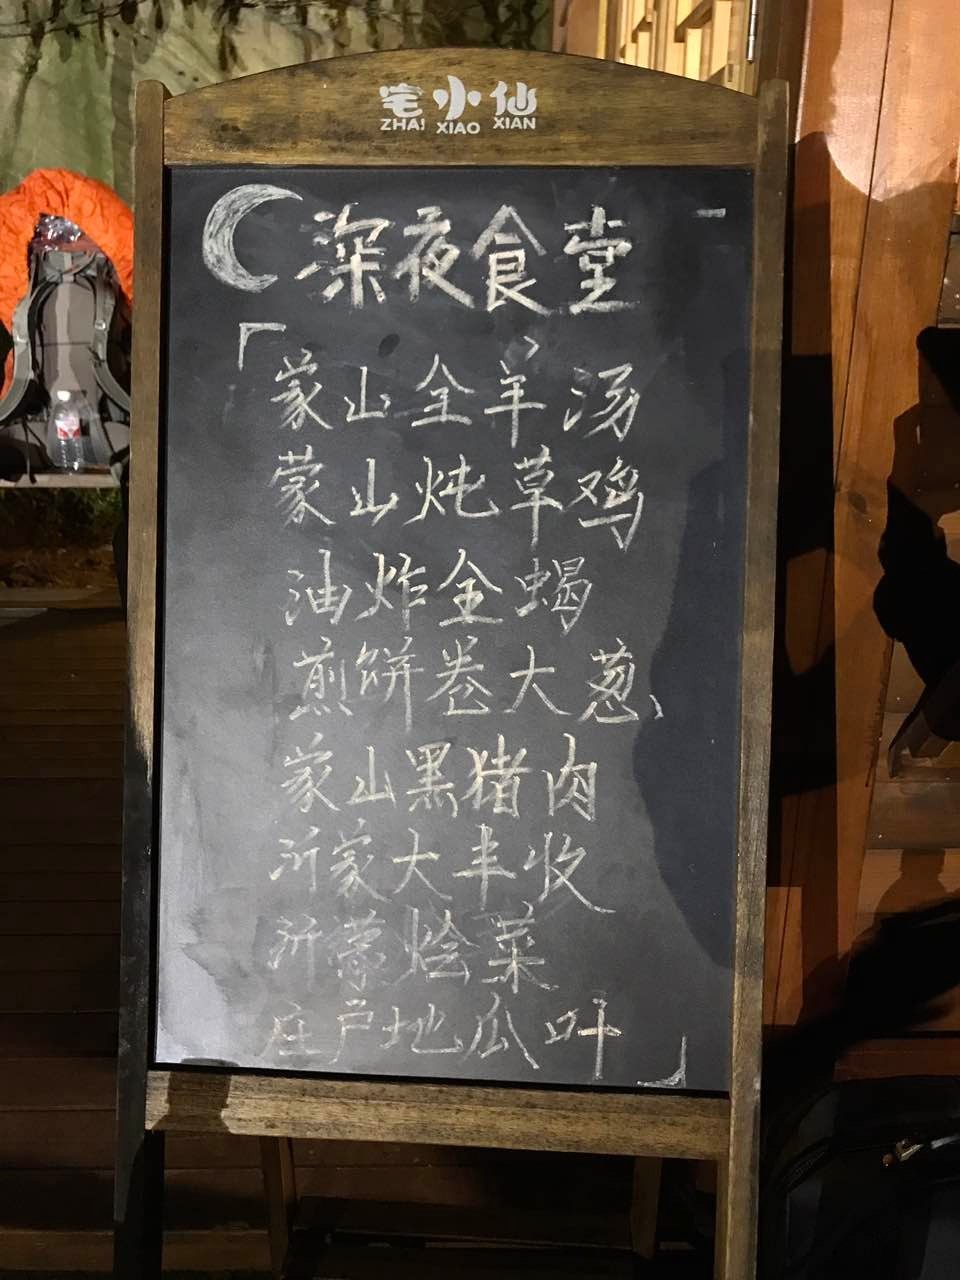 宅小仙
ZHAI XIAO XIAN
深夜食堂
「蒙山全羊汤
蒙山炖草鸡
油炸全蝎
煎饼卷大葱
蒙山黑猪肉
沂蒙大丰收
沂蒙烩菜
庄户地瓜叶」